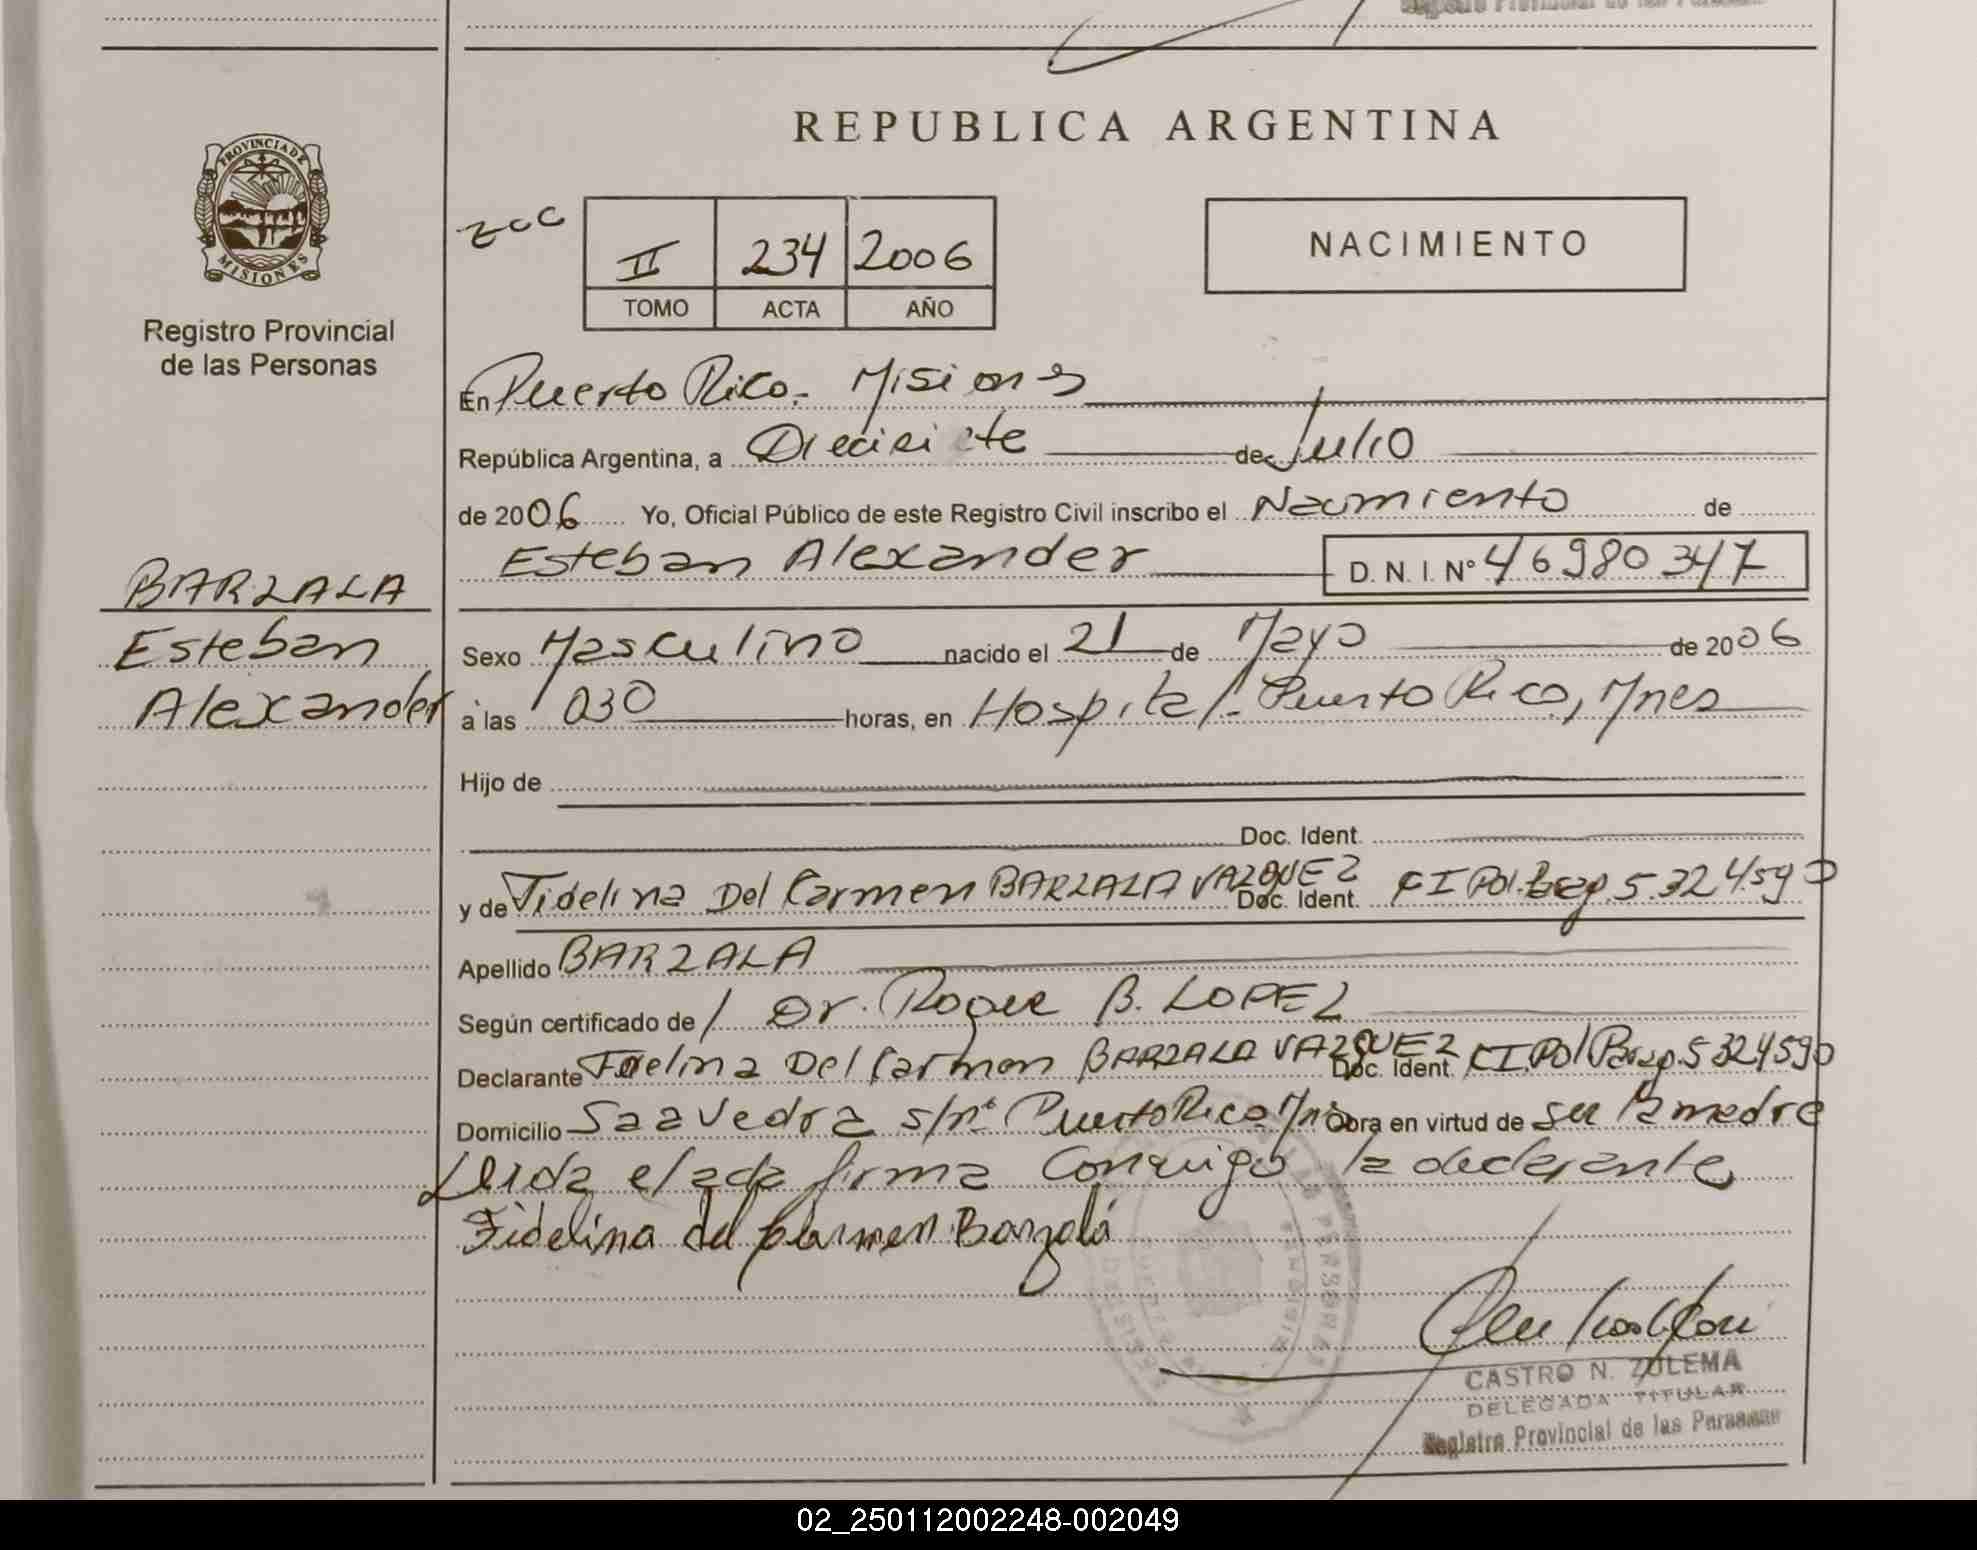 REPUBLICA ARGENTINA
PROVINCIA DE
MISIONES
Registro Provincial
de las Personas
II 234 2006
TOMO ACTA AÑO
NACIMIENTO
En Puerto Rico. Misiones
República Argentina, a Diecisiete de Julio
de 2006 Yo, Oficial Público de este Registro Civil inscribo el Nacimiento de
Esteban Alexander D. N. I. Nº 46980347
BARZALA
Esteban
Alexander
Sexo Masculino nacido el 21 de Mayo de 2006
a las 030 horas, en Hospital. Puerto Rico, Mnes
Hijo de
Doc. Ident.
y de Fidelina Del Carmen BARZALA VAZQUEZ Doc. Ident. CI Pol. 5.324.590
Apellido BARZALA
Según certificado de Dr. Roque B. LOPEZ
Declarante Fidelina Del Carmen BARZALA VAZQUEZ Doc. Ident. CI. Pol 5324590
Domicilio Saavedra s/nº Puerto Rico. Obra en virtud de ser la madre
Leida el acta firma conmigo la declarante
Fidelina del Carmen Barzalá
CASTRO N. ZULEMA
DELEGADA TITULAR
Registro Provincial de las Personas
02_250112002248-002049